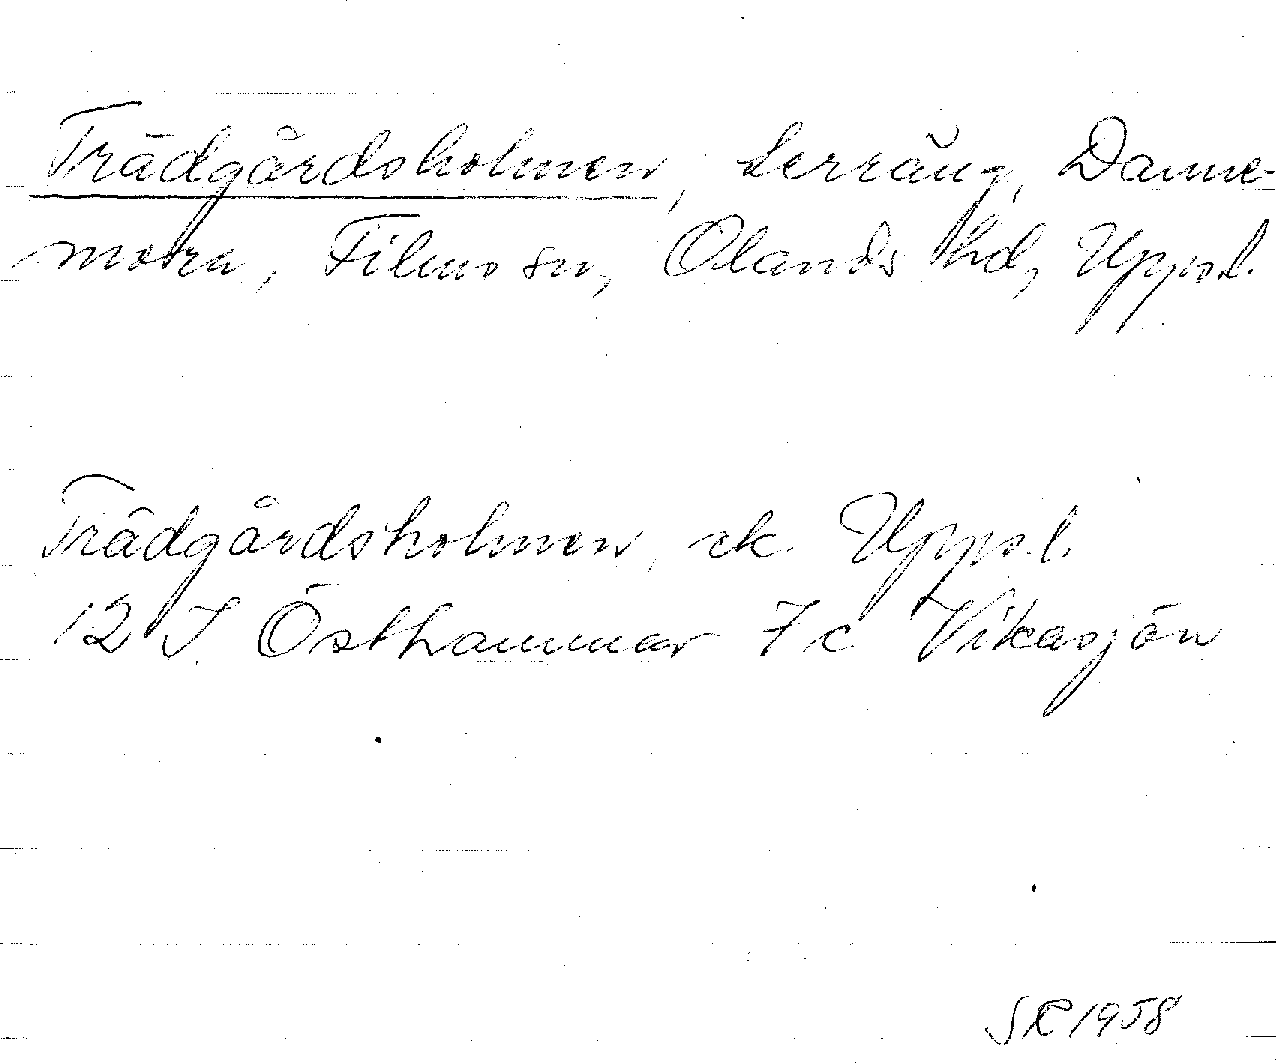 Trädgårdsholmen, terräng, Danne-
mora, Films sn, Olands hd, Uppsl.
Trädgårdsholmen, ek. Uppsl.
12 I Östhammar 7 c Vikasjön
SR 1958